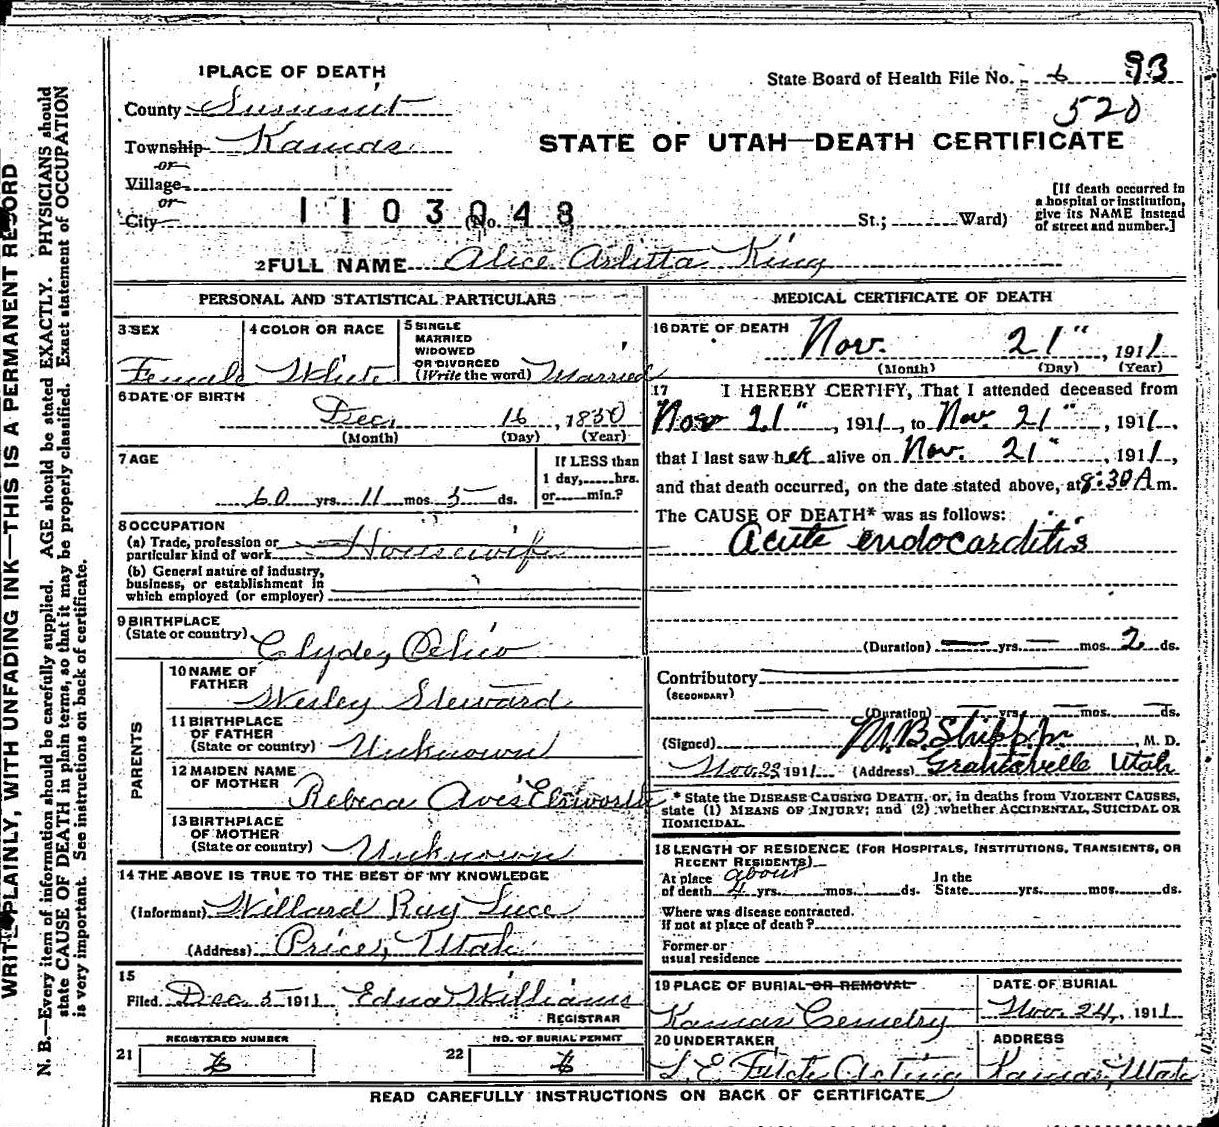 WRITE PLAINLY, WITH UNFADING INK—THIS IS A PERMANENT RECORD
N. B.—Every item of information should be carefully supplied. AGE should be stated EXACTLY. PHYSICIANS should
state CAUSE OF DEATH in plain terms, so that it may be properly classified. Exact statement of OCCUPATION
is very important. See instructions on back of certificate.
1 PLACE OF DEATH
State Board of Health File No. 93
520
County Summit
Township Kamas
or
Village
or
City (No. St.; Ward)
1103048
STATE OF UTAH—DEATH CERTIFICATE
[If death occurred in
a hospital or institution,
give its NAME instead
of street and number.]
2 FULL NAME Alice Arlitta King
PERSONAL AND STATISTICAL PARTICULARS
3 SEX
Female
4 COLOR OR RACE
White
5 SINGLE
MARRIED
WIDOWED
OR DIVORCED
(Write the word) Married
6 DATE OF BIRTH
Dec. 16, 1850
(Month) (Day) (Year)
7 AGE
60 yrs. 11 mos. 5 ds.
If LESS than
1 day, hrs.
or min.?
8 OCCUPATION
(a) Trade, profession or
particular kind of work Housewife
(b) General nature of industry,
business, or establishment in
which employed (or employer)
9 BIRTHPLACE
(State or country) Clyde, Ohio
PARENTS
10 NAME OF
FATHER
Wesley Steward
11 BIRTHPLACE
OF FATHER
(State or country) Unknown
12 MAIDEN NAME
OF MOTHER
Rebeca Avis Elsworth
13 BIRTHPLACE
OF MOTHER
(State or country) Unknown
14 THE ABOVE IS TRUE TO THE BEST OF MY KNOWLEDGE
(Informant) Willard Ray Luce
(Address) Price, Utah
15
Filed Dec 5 1911 Edna Williams
REGISTRAR
REGISTERED NUMBER
21
NO. OF BURIAL PERMIT
22
MEDICAL CERTIFICATE OF DEATH
16 DATE OF DEATH
Nov. 21", 1911
(Month) (Day) (Year)
17 I HEREBY CERTIFY, That I attended deceased from
Nov 21", 1911, to Nov. 21", 1911,
that I last saw her alive on Nov. 21", 1911,
and that death occurred, on the date stated above, at 8:30 A m.
The CAUSE OF DEATH* was as follows:
Acute endocarditis
(Duration) yrs. mos. 2 ds.
Contributory
(SECONDARY)
(Duration) yrs. mos. ds.
(Signed) M. B. Shipp Jr. M. D.
Nov 23 1911 (Address) Grantsville Utah
* State the DISEASE CAUSING DEATH, or, in deaths from VIOLENT CAUSES,
state (1) MEANS OF INJURY; and (2) whether ACCIDENTAL, SUICIDAL OR
HOMICIDAL.
18 LENGTH OF RESIDENCE (FOR HOSPITALS, INSTITUTIONS, TRANSIENTS, OR
RECENT RESIDENTS)
At place about
of death 4 yrs. mos. ds. In the State yrs. mos. ds.
Where was disease contracted.
If not at place of death?
Former or
usual residence
19 PLACE OF BURIAL OR REMOVAL
Kamas Cemetry
DATE OF BURIAL
Nov. 24, 1911
20 UNDERTAKER
Acting
ADDRESS
Kamas, Utah
READ CAREFULLY INSTRUCTIONS ON BACK OF CERTIFICATE